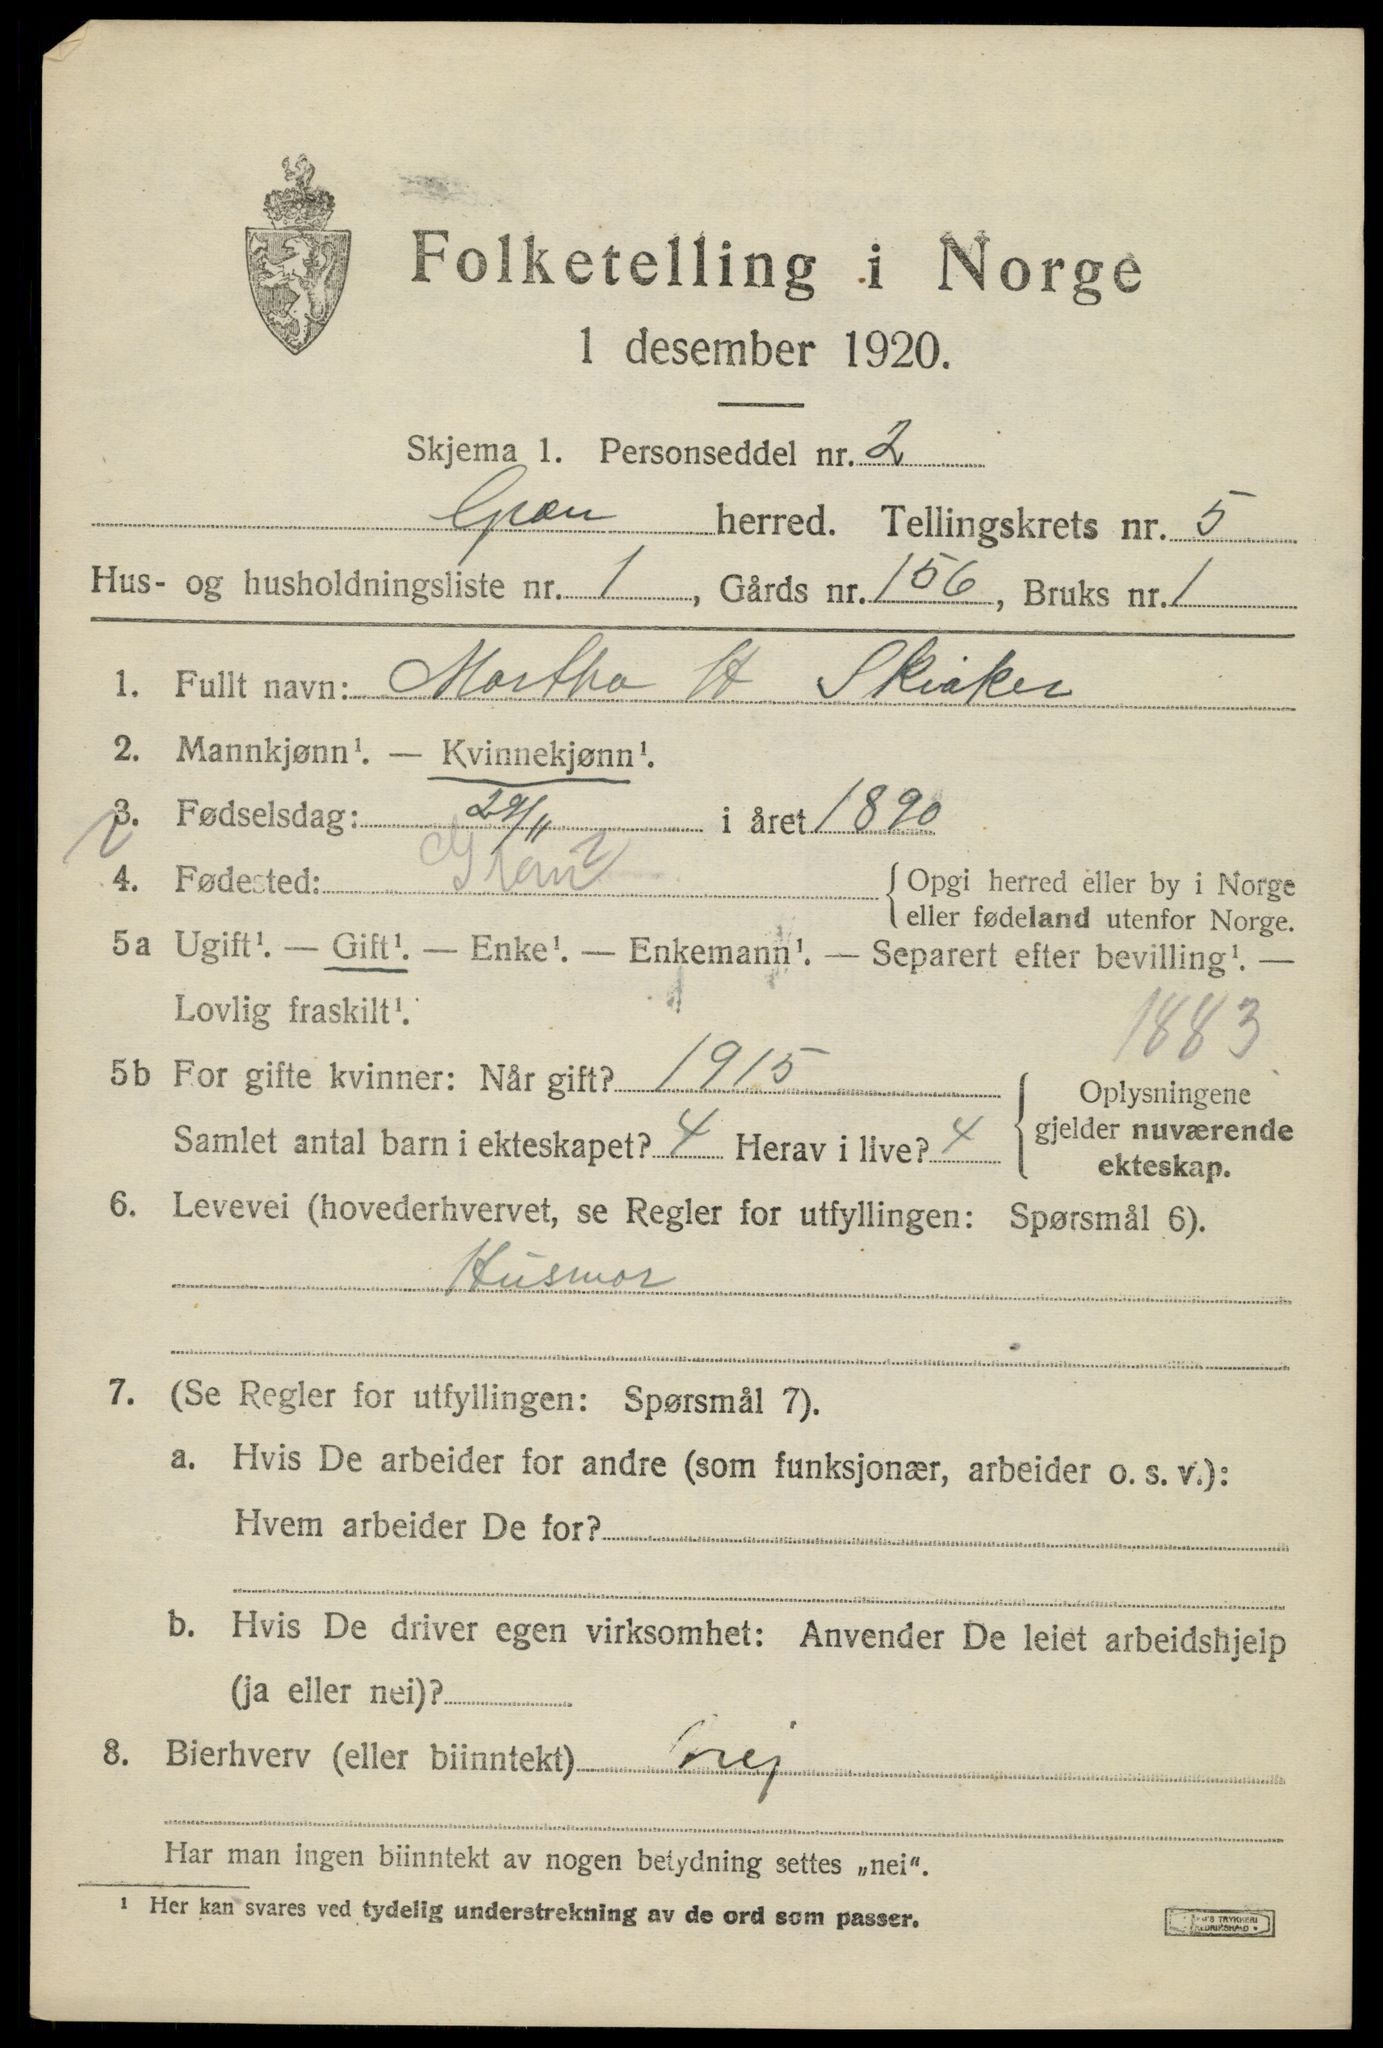 Folketelling i Norge
1 desember 1920.
Skjema 1. Personseddel nr. 2
Gran herred. Tellingskrets nr. 5
Hus- og husholdningsliste nr. 1, Gårds nr. 156, Bruks nr. 1
1. Fullt navn: Martha H Skiaker
2. Mannkjønn¹. — Kvinnekjønn¹.
3. Fødselsdag: 29/11 i året 1890
4. Fødested: Gran { Opgi herred eller by i Norge
eller fødeland utenfor Norge.
5a Ugift¹. — Gift¹. — Enke¹. — Enkemann¹. — Separert efter bevilling¹. —
Lovlig fraskilt¹.
1883
5b For gifte kvinner: Når gift? 1915
Samlet antal barn i ekteskapet? 4 Herav i live? 4
{ Oplysningene
gjelder nuværende
ekteskap.
6. Levevei (hovederhvervet, se Regler for utfyllingen: Spørsmål 6).
Husmor
7. (Se Regler for utfyllingen: Spørsmål 7).
a. Hvis De arbeider for andre (som funksjonær, arbeider o. s. v.):
Hvem arbeider De for?
b. Hvis De driver egen virksomhet: Anvender De leiet arbeidshjelp
(ja eller nei)?
8. Bierhverv (eller biinntekt) nej
Har man ingen biinntekt av nogen betydning settes „nei“.
¹ Her kan svares ved tydelig understrekning av de ord som passer.
TRYKKERI